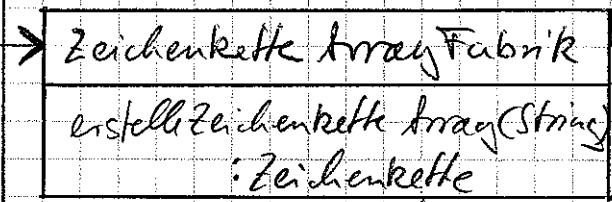 Zeichenkette Array Fabrik
erstelleZeichenkette Array(String)
: Zeichenkette